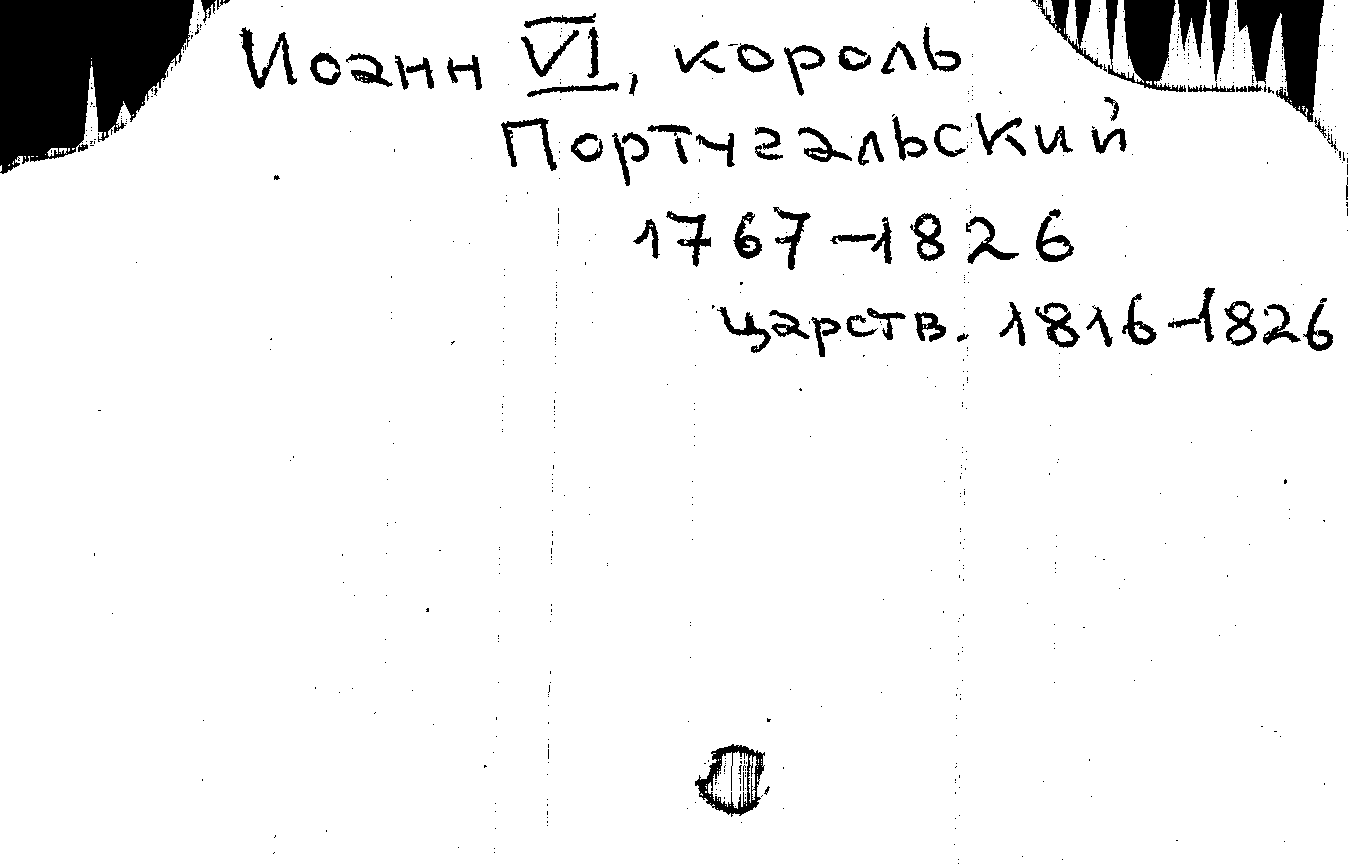 Иоанн VI, король
Португальский
1767-1826
царств. 1816-1826